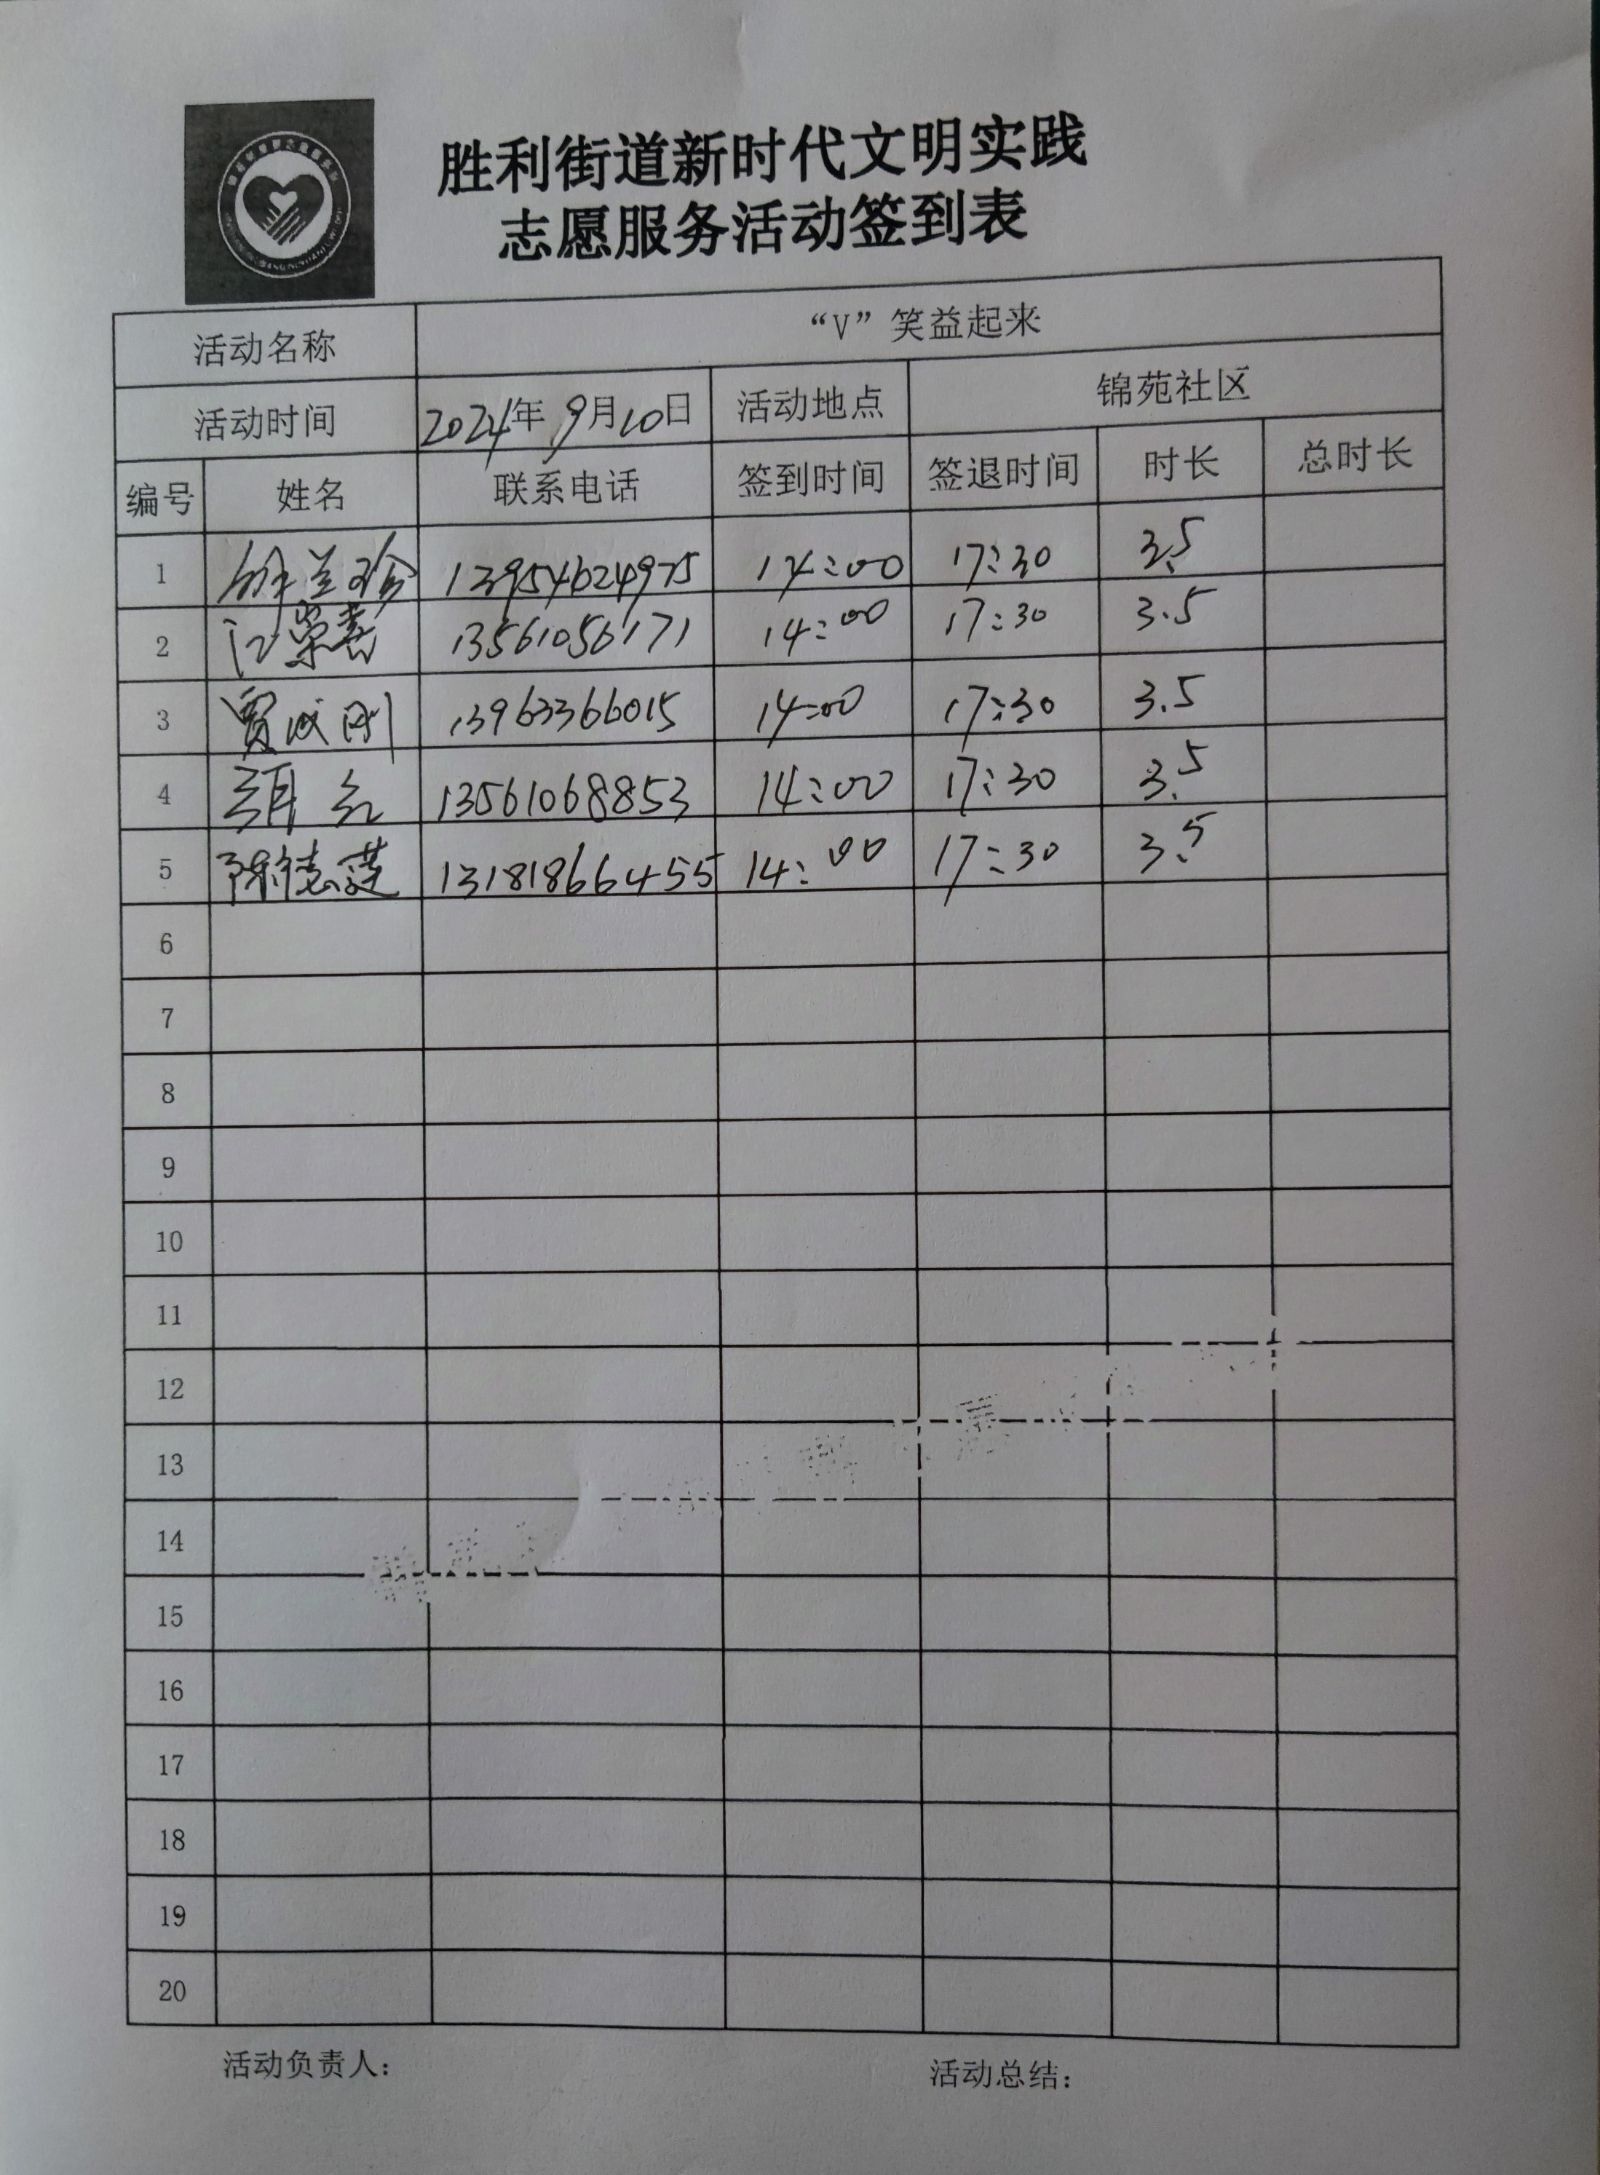 胜利街道新时代文明实践
志愿服务活动签到表
活动名称 “V”笑益起来
活动时间 2024年 9月10日 活动地点 锦苑社区
编号 姓名 联系电话 签到时间 签退时间 时长 总时长
1 徐兰珍 13954624975 14:00 17:30 3.5
2 江荣喜 13561056171 14:00 17:30 3.5
3 贾成刚 13963366015 14:00 17:30 3.5
4 13561068853 14:00 17:30 3.5
5 陈德莲 13181866455 14:00 17:30 3.5
6
7
8
9
10
11
12
13
14
15
16
17
18
19
20
活动负责人： 活动总结：